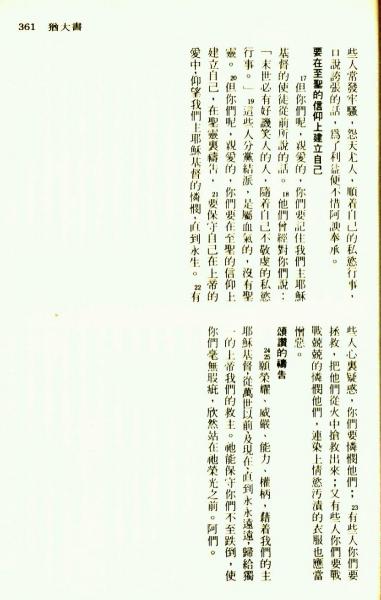 361 猶大書
些人常發牢騷，怨天尤人，順着自己的私慾行事，
口說誇張的話，爲了利益便不惜阿諛奉承。
要在至聖的信仰上建立自己
17但你們呢，親愛的，你們要記住我們主耶穌
基督的使徒從前所說的話。18他們曾經對你們說：
「末世必有好譏笑人的人，隨着自己不敬虔的私慾
行事。」19這些人分黨結派，是屬血氣的，沒有聖
靈。20但你們呢，親愛的，你們要在至聖的信仰上
建立自己，在聖靈裏禱告，21要保守自己在上帝的
愛中，仰望我們主耶穌基督的憐憫，直到永生。22有
些人心裏疑惑，你們要憐憫他們；23有些人你們要
拯救，把他們從火中搶救出來；又有些人你們要戰
戰兢兢的憐憫他們，連染上情慾污漬的衣服也應當
憎惡。
頌讚的禱告
24 25願榮耀、威嚴、能力、權柄，藉着我們的主
耶穌基督，從萬世以前及現在，直到永永遠遠，歸給獨
一的上帝我們的救主。祂能保守你們不至跌倒，使
你們毫無瑕疵，欣然站在祂榮光之前。阿們。